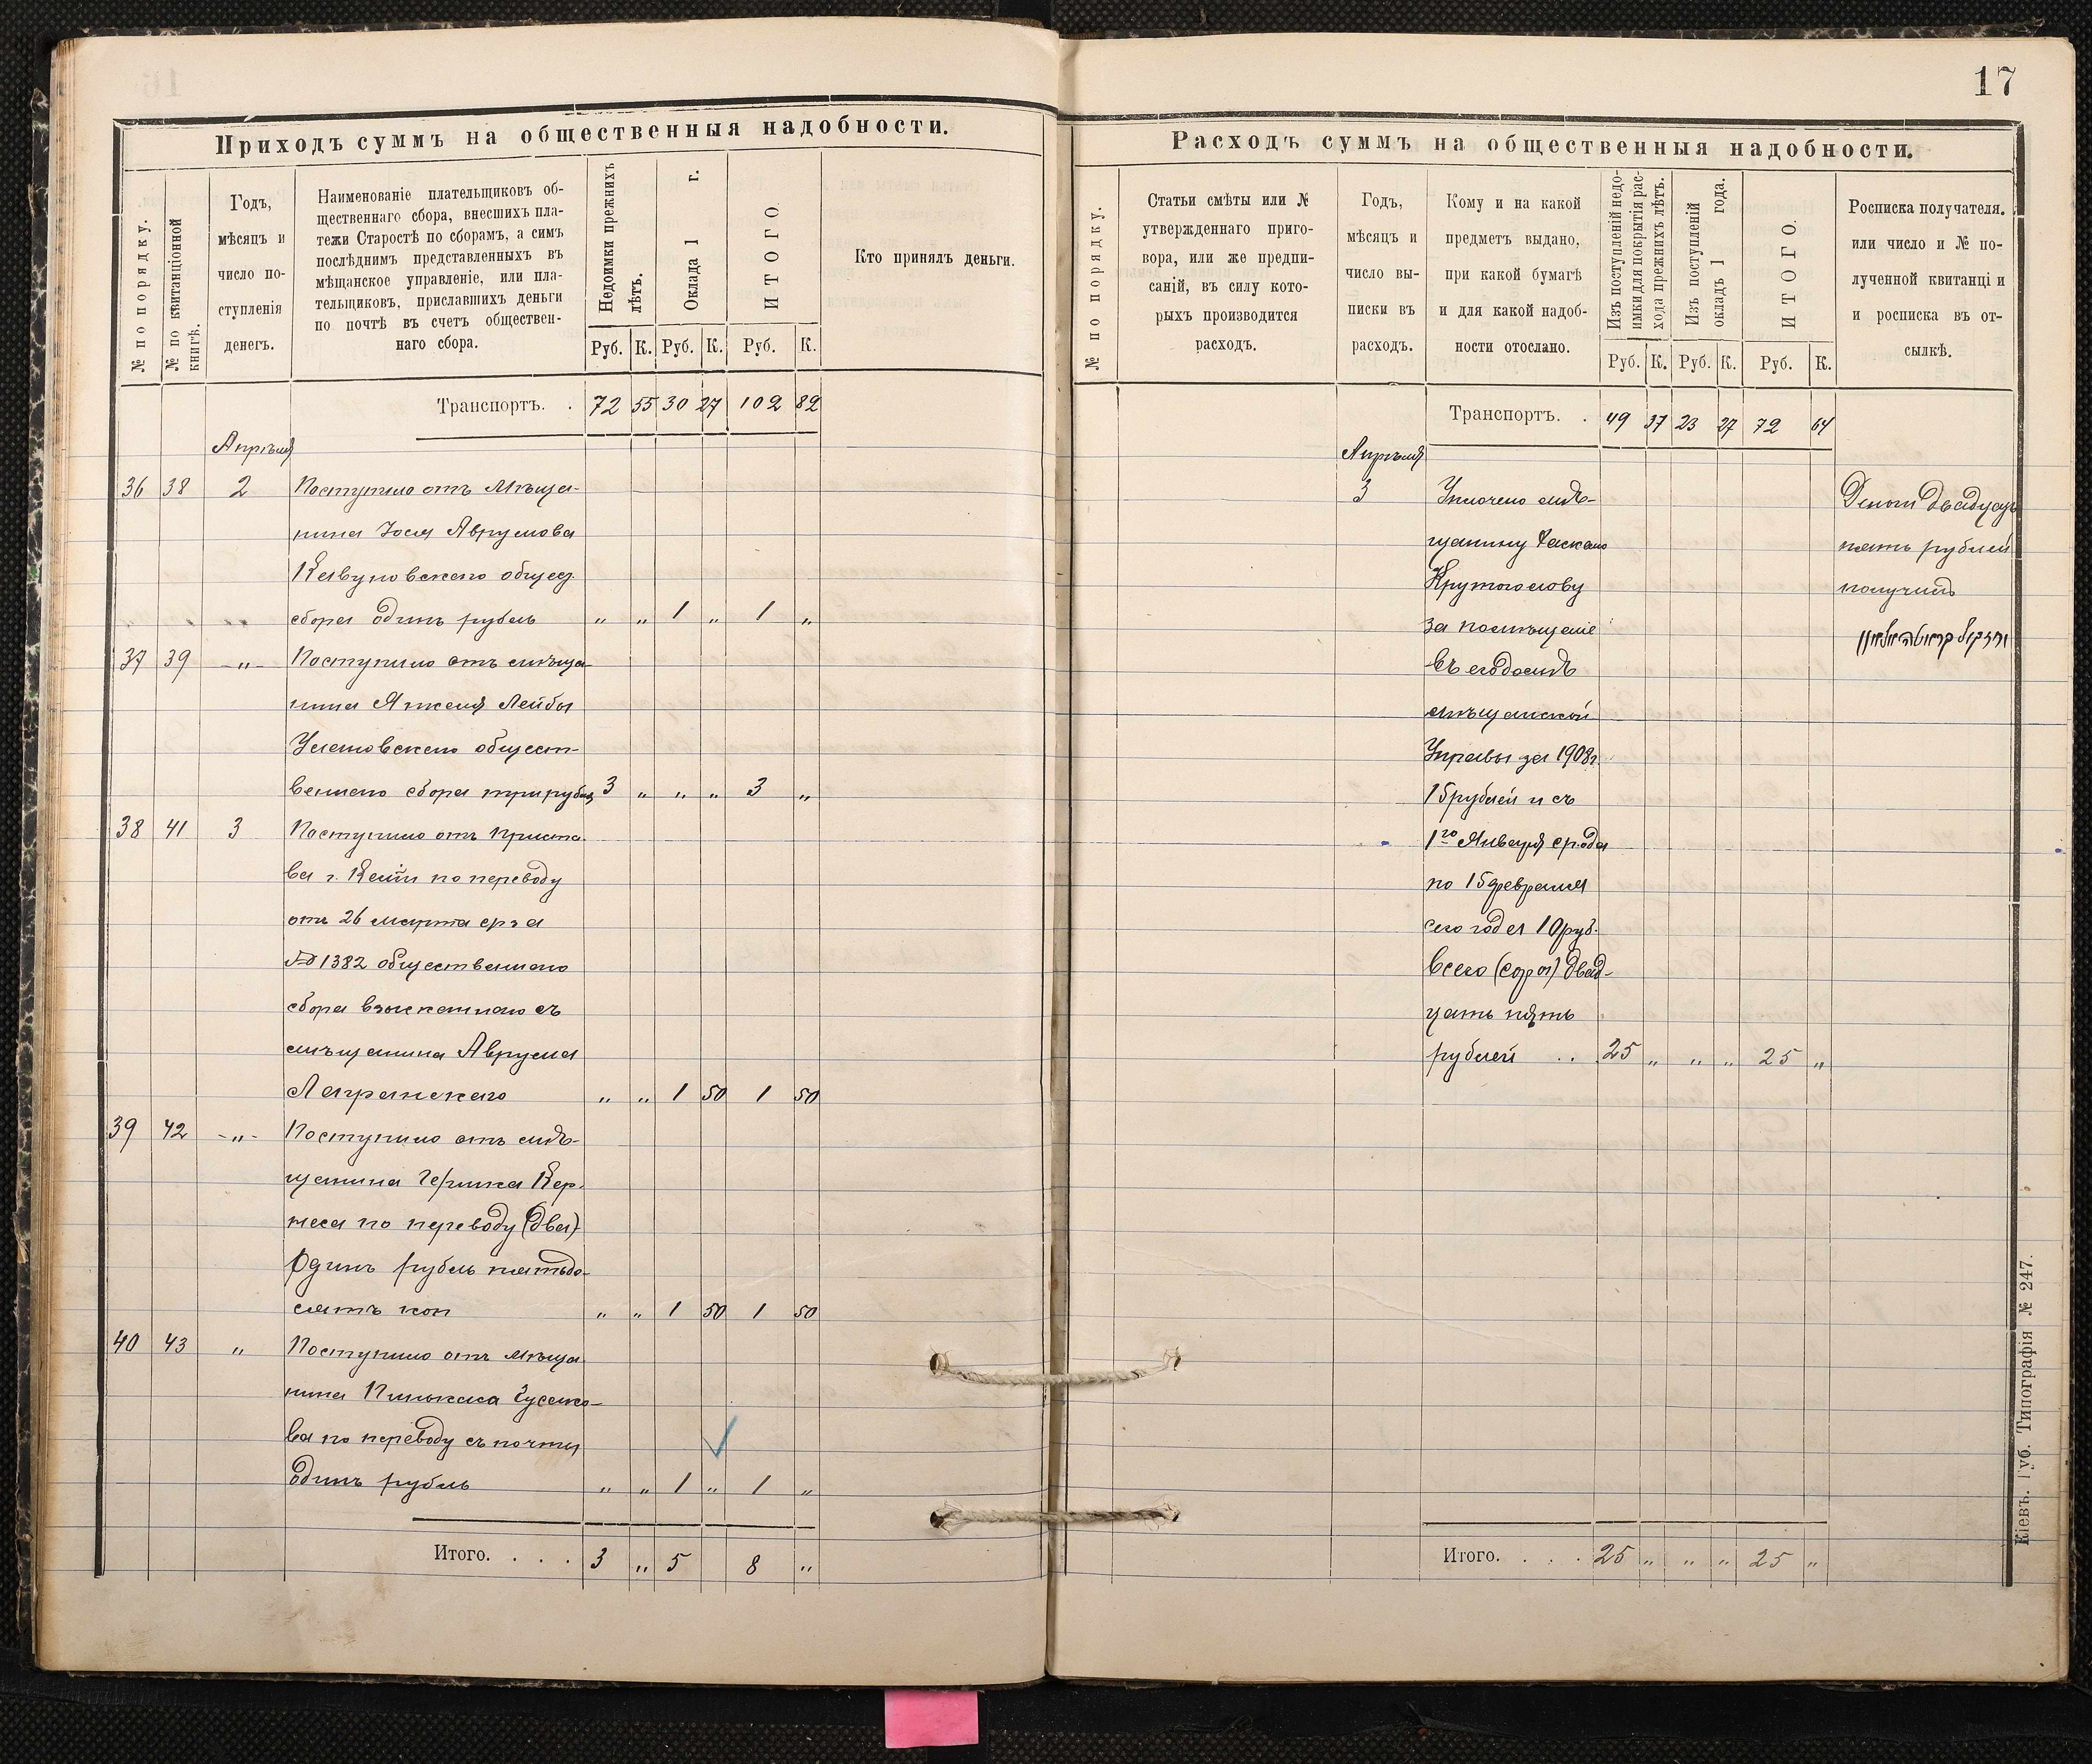 17
Приходъ суммъ на общественныя надобности.
№ по порядку.
№ по квитанціонной книгѣ.
Годъ,
мѣсяцъ и
число по-
ступленія
денегъ.
Наименованіе плательщиковъ об-
щественнаго сбора, внесшихъ пла-
тежи Старостѣ по сборамъ, а симъ
послѣднимъ представленныхъ въ
мѣщанское управленіе, или пла-
тельщиковъ, приславшихъ деньги
по почтѣ въ счетъ обществен-
наго сбора.
Недоимки прежнихъ
лѣтъ.
Оклада 1 г.
ИТОГО.
Руб. К. Руб. К. Руб. К.
Кто принялъ деньги.
Транспортъ. . 72 55 30 27 102 82
Апрѣля
36 38 2 Поступило отъ Мѣща-
нина Іося Аврумова
общест.
сбора одинъ рубль " " 1 " 1 "
37 39 -"- Поступило отъ мѣща-
нина Янкеля Лейбы
общест-
веннаго сбора три рубля 3 " " " 3 "
38 41 3 Поступило отъ приста-
ва г. по переводу
отъ 26 марта с. г. за
№ 1382 общественнаго
сбора взысканнаго съ
мѣщанина Аврума
" " 1 50 1 50
39 42 -"- Поступило отъ мѣ-
щанина Гершка Кер-
неса по переводу (два)
Одинъ рубль пятьде-
сятъ коп " " 1 50 1 50
40 43 " Поступило отъ мѣща-
нина Пинькаса Гусако-
ва по переводу съ почты
одинъ рубль " " 1 " 1 "
Итого. . . . 3 " 5 8 "
Расходъ суммъ на общественныя надобности.
№ по порядку.
Статьи смѣты или №
утвержденнаго приго-
вора, или же предпи-
саній, въ силу кото-
рыхъ производится
расходъ.
Годъ,
мѣсяцъ и
число вы-
писки въ
расходъ.
Кому и на какой
предметъ выдано,
при какой бумагѣ
и для какой надоб-
ности отослано.
Изъ поступленій недо-
имки для покрытія рас-
хода прежнихъ лѣтъ.
Изъ поступленій
окладъ 1 года.
ИТОГО.
Руб. К. Руб. К. Руб. К.
Росписка получателя.
или число и № по-
лученной квитанці и
и росписка въ от-
сылкѣ.
Транспортъ. . 49 37 23 27 72 64
Апрѣля
3 Уплочено мѣ-
щанину Хаскелю
Крутоголову
за помѣщеніе
въ его домѣ
мѣщанской
Управы за 1908 г.
15 рублей и съ
1го Января с. года
по 15 февраля
сего года 10 руб.
всего двад-
цать пять
рублей . . 25 " " " 25 "
Деньги двадцать
пять рублей
получилъ
Итого. . . . 25 " " " 25 "
Кіевъ. Губ. Типографія № 247.